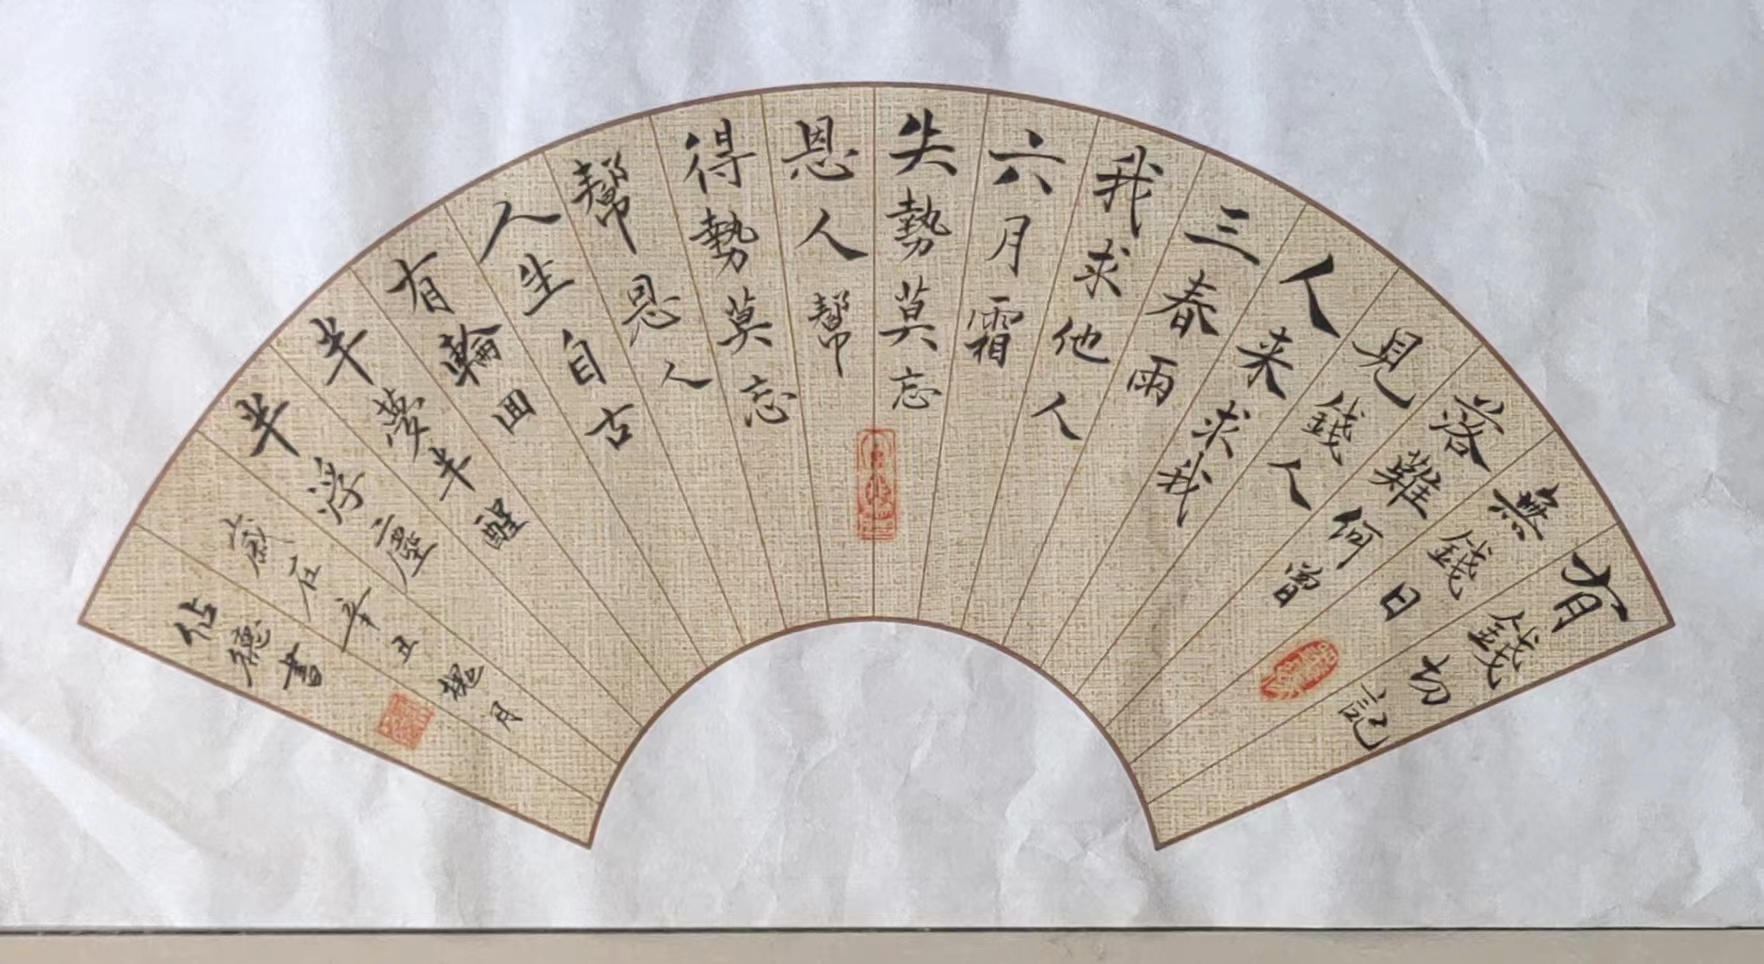 有錢切記
無錢日
落難何曾
見錢人
人来求我
三春雨
我求他人
六月霜
失勢莫忘
恩人幫
得勢莫忘
幫恩人
人生自古
有輪囬
半夢半醒
半浮塵
歲在辛丑槐月
書